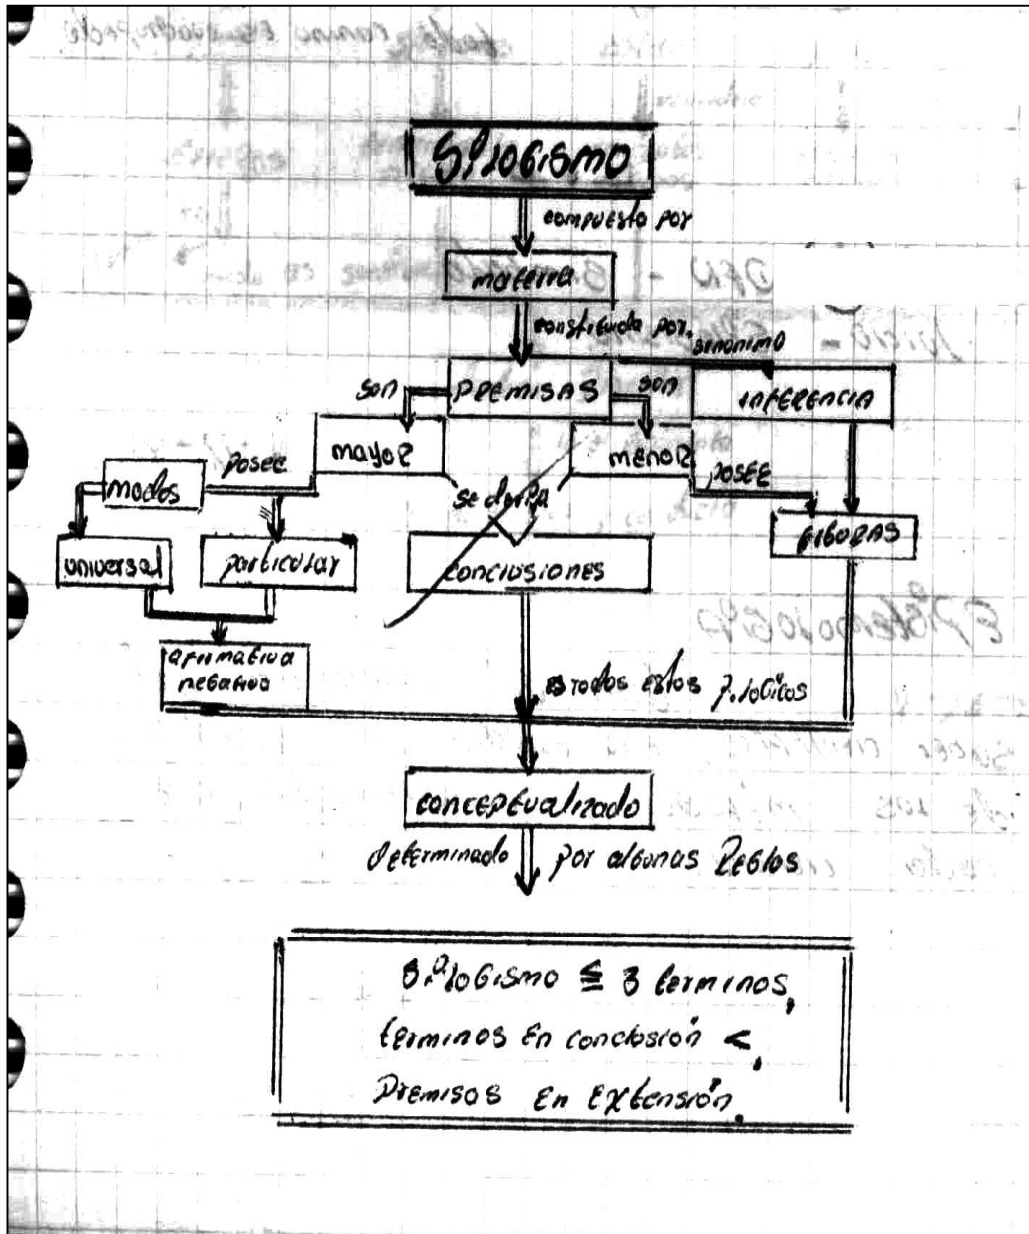 Silogismo
compuesto por
materia
constituida por.
sinonimo
son
PREMISAS
son
INFERENCIA
mayor
menor
posee
posee
modos
se deriva
FIGURAS
universal
particular
conclusiones
afirmativa
negativo
es todos estos p. logicos
conceptualizado
determinado por algunas Reglas
Silogismo ≤ 3 terminos,
terminos en conclosión <,
Premisas en Extensión.
Epistemologia